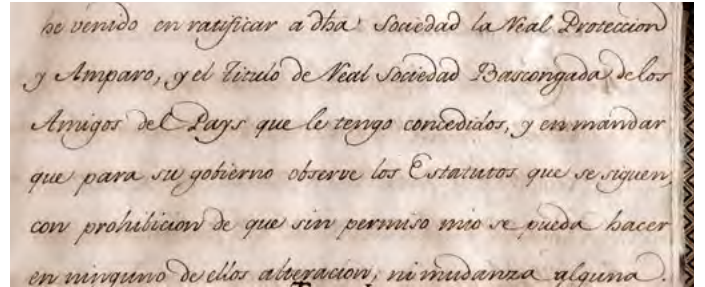 he venido en ratificar a dha Sociedad la Real Proteccion
y Amparo, y el Titulo de Real Sociedad Bascongada de los
Amigos del Pays que le tengo concedidos, y en mandar
que para su gobierno observe los Estatutos que se siguen,
con prohibicion de que sin permiso mio se pueda hacer
en ninguno de ellos alteracion, ni mudanza alguna.